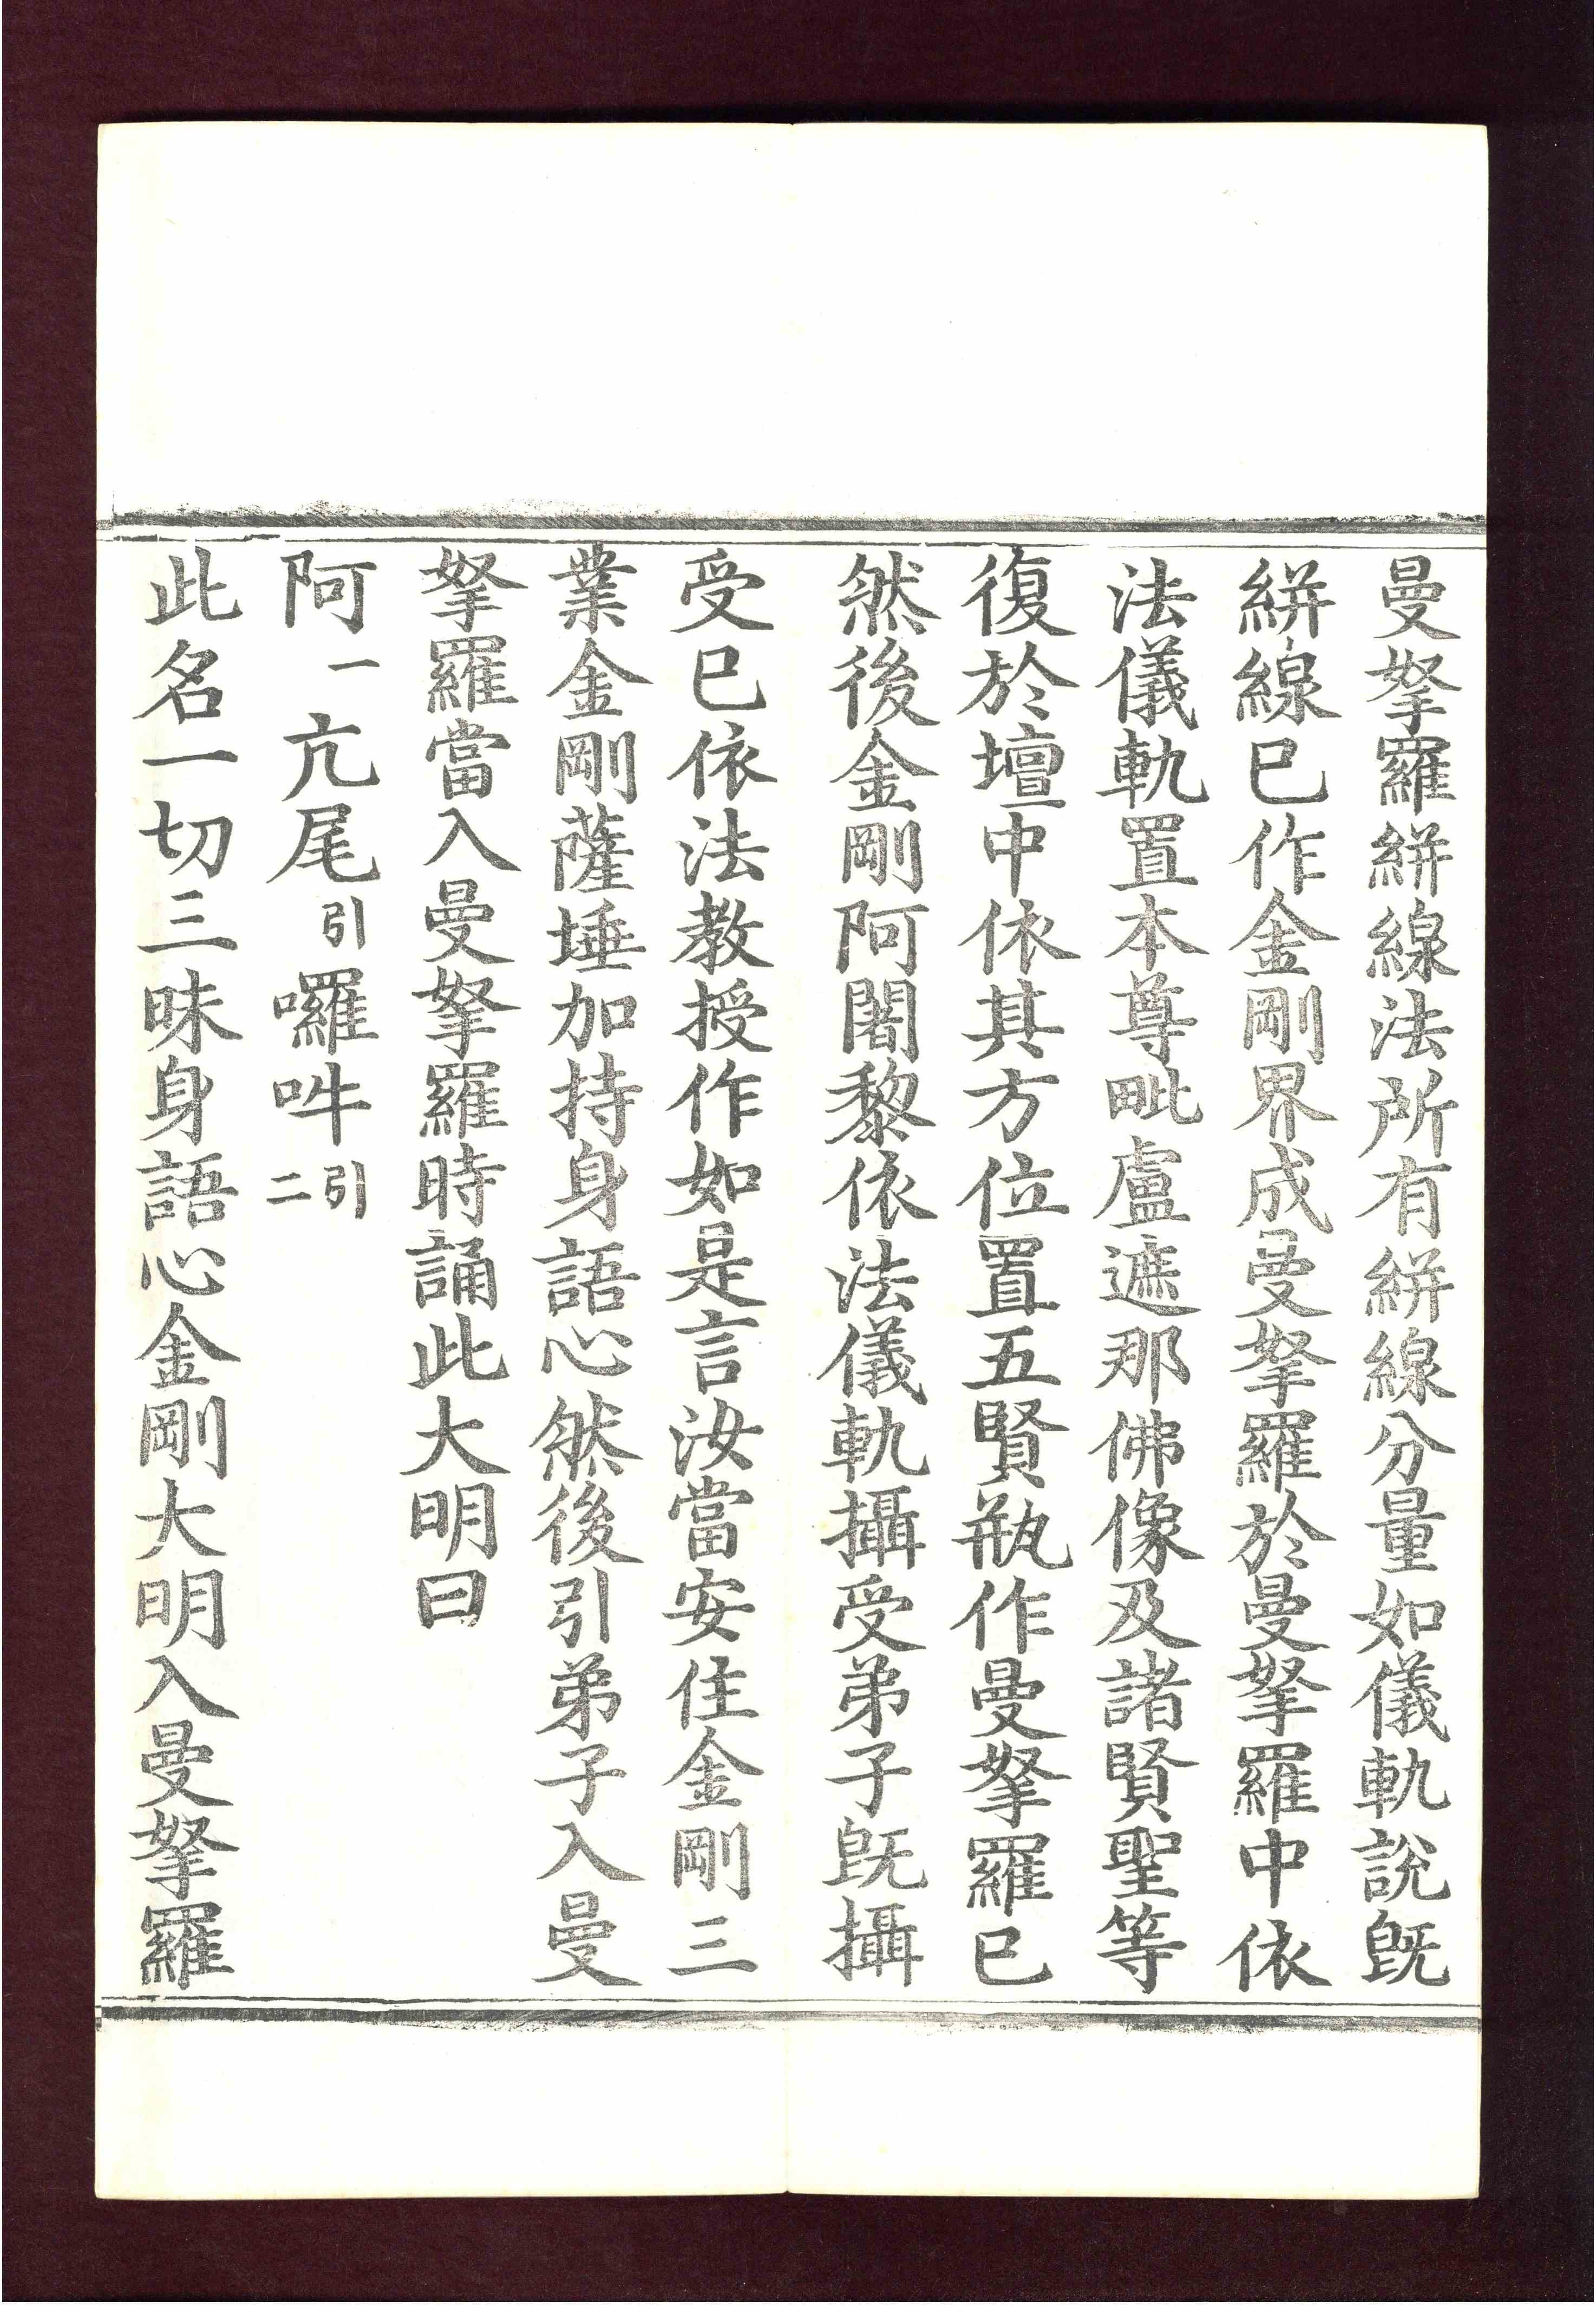 曼拏羅絣線法所有絣線分量如儀軌說既
絣線已作金剛界成曼拏羅於曼拏羅中依
法儀軌置本尊毗盧遮那佛像及諸賢聖等
復於壇中依其方位置五賢瓶作曼拏羅已
然後金剛阿闍黎依法儀軌攝受弟子既攝
受已依法教授作如是言汝當安住金剛三
業金剛薩埵加持身語心然後引弟子入曼
拏羅當入曼拏羅時誦此大明曰
阿一亢尾引囉吽引二
此名一切三昧身語心金剛大明入曼拏羅